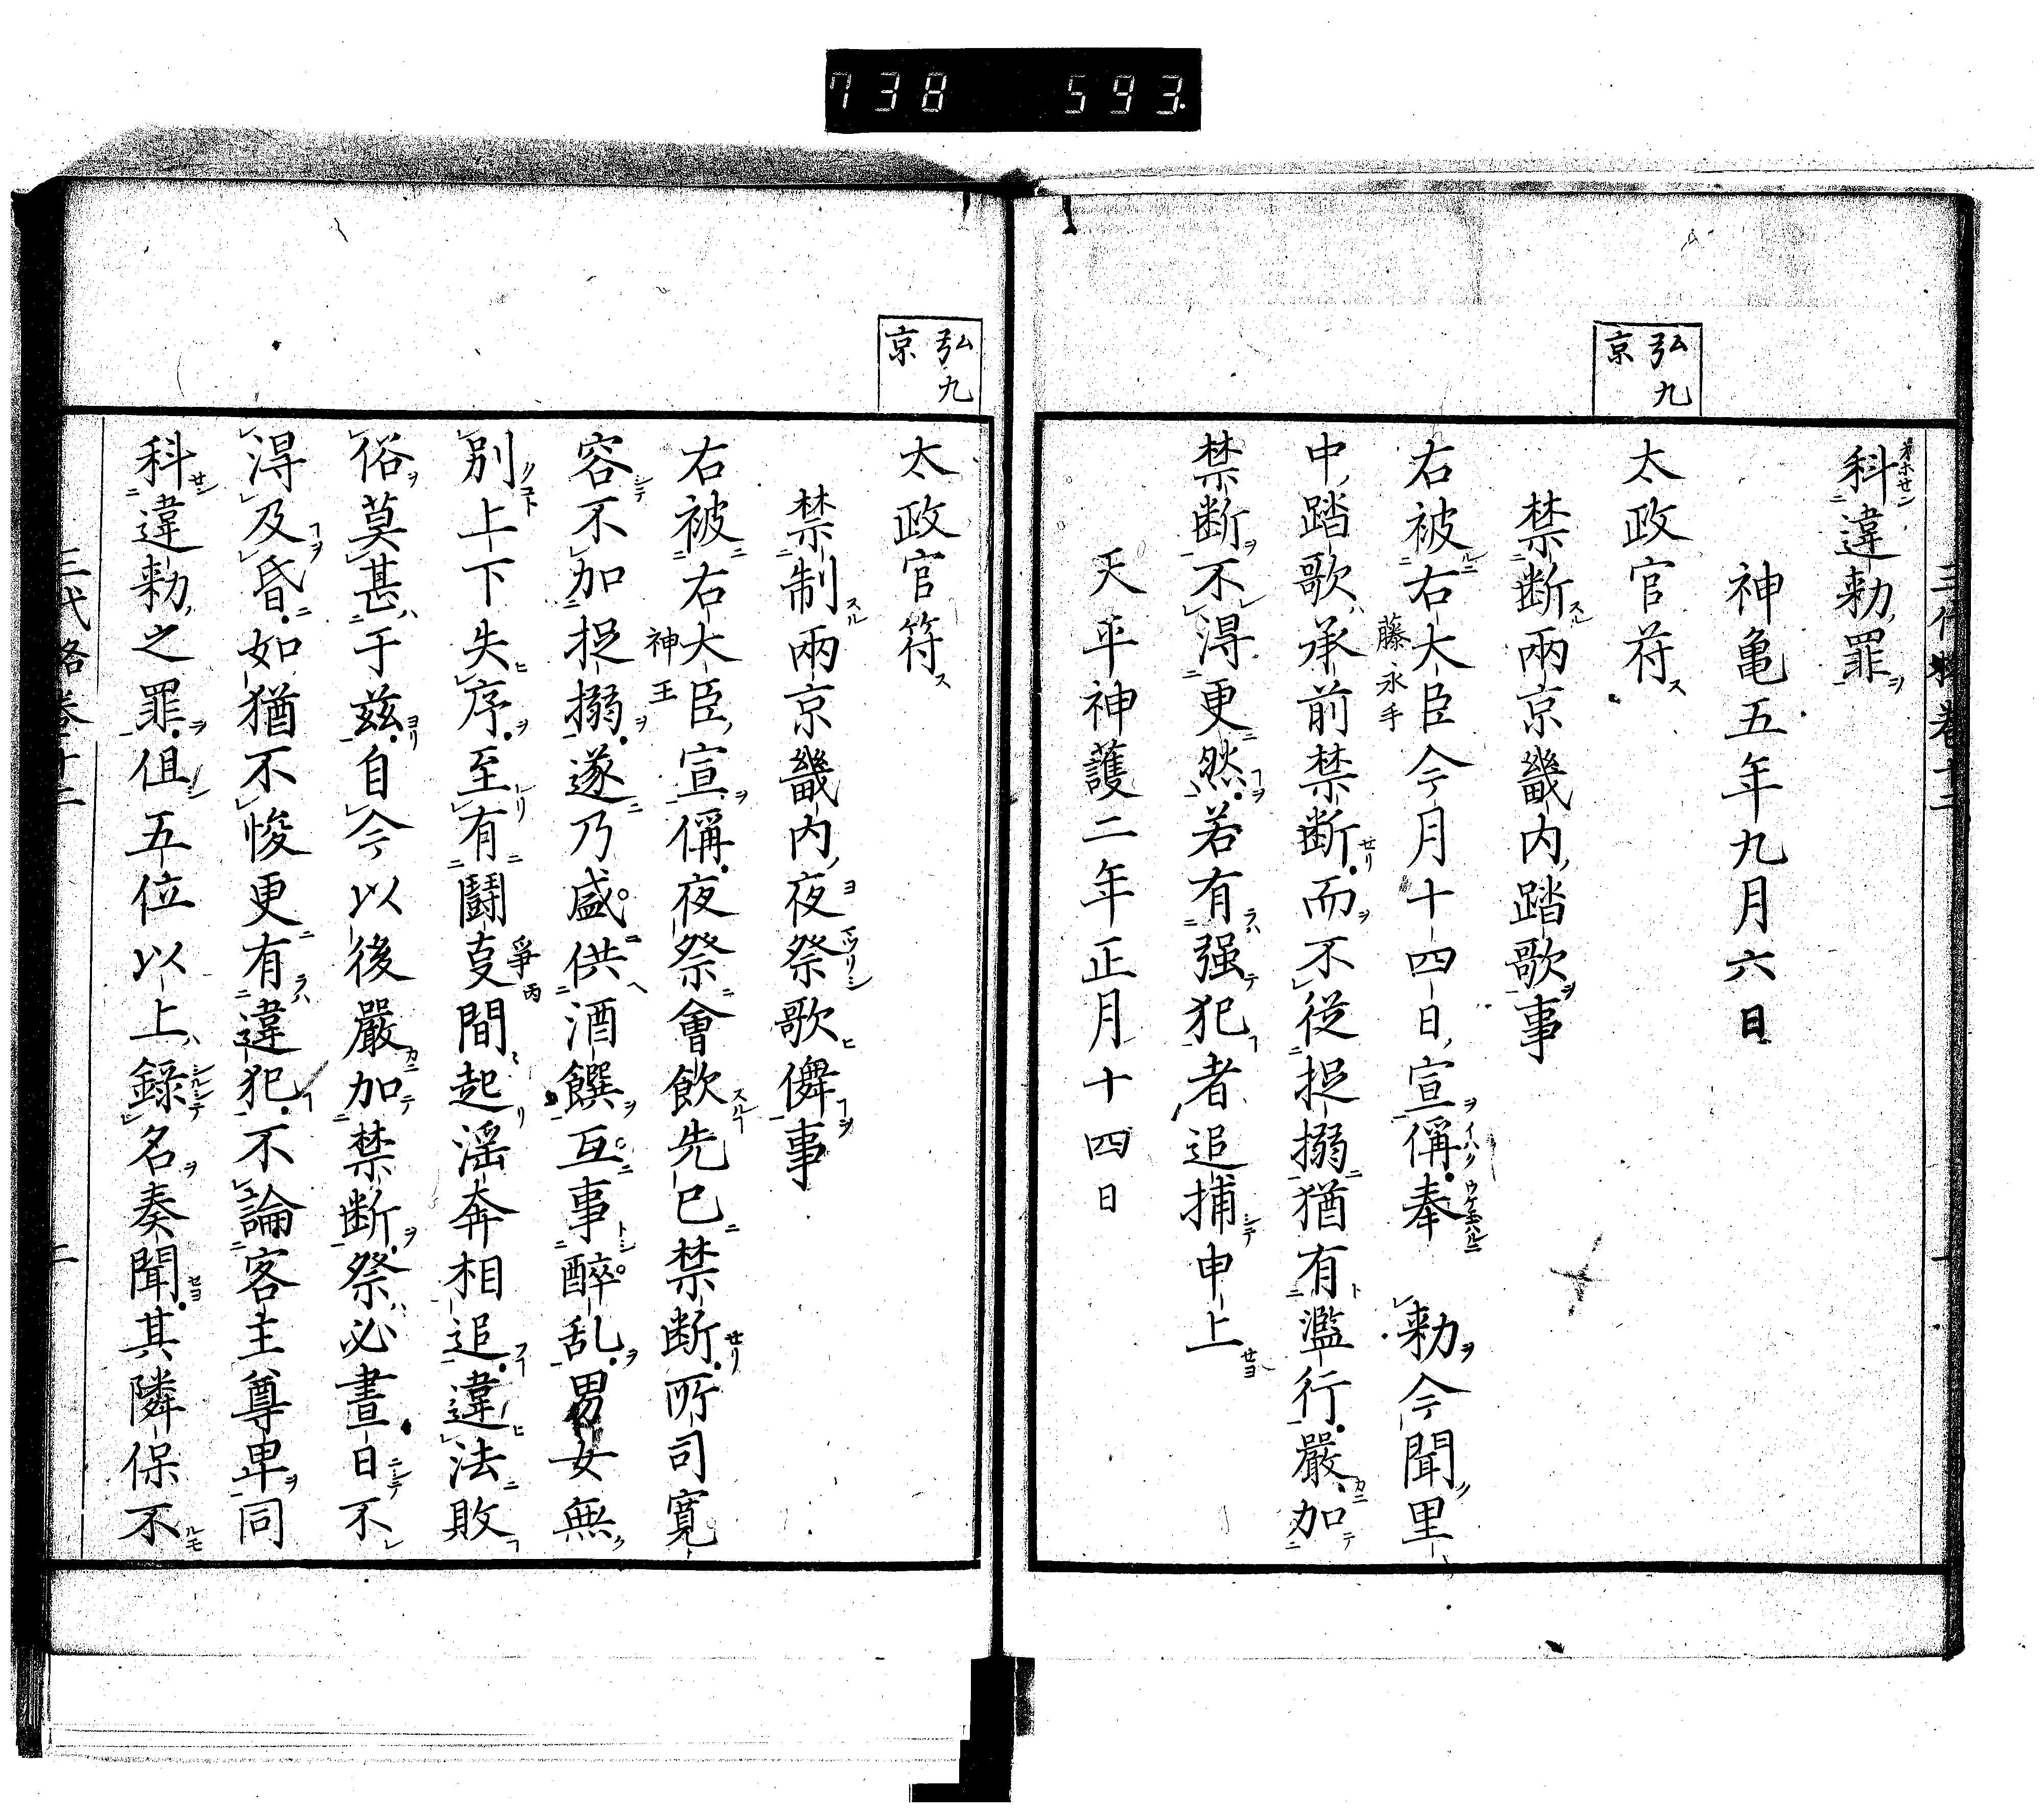 738 593
三代格巻十二
科違勅罪
神亀五年九月六日
弘九
京
太政官苻
禁断兩京畿内踏歌事
右被右大臣今月十四日宣偁奉　勅今聞里
藤永手
中踏歌承前禁断而不従捉搦猶有濫行嚴加
禁断不得更然若有强犯者追捕申上
天平神護二年正月十四日
弘九
京
太政官符
禁制兩京畿内夜祭歌儛事
右被右大臣宣偁夜祭會飲先已禁断所司寛
神王
容不加捉搦遂乃盛供酒饌互事醉乱男女無
別上下失序至有鬪㪅間起滛奔相追違法敗
爭丙
俗莫甚于茲自今以後嚴加禁断祭必晝日不
淂及昏如猶不悛更有違犯不論客主尊卑同
科違勅之罪但五位以上錄名奏聞其隣保不
三代格巻十二 二